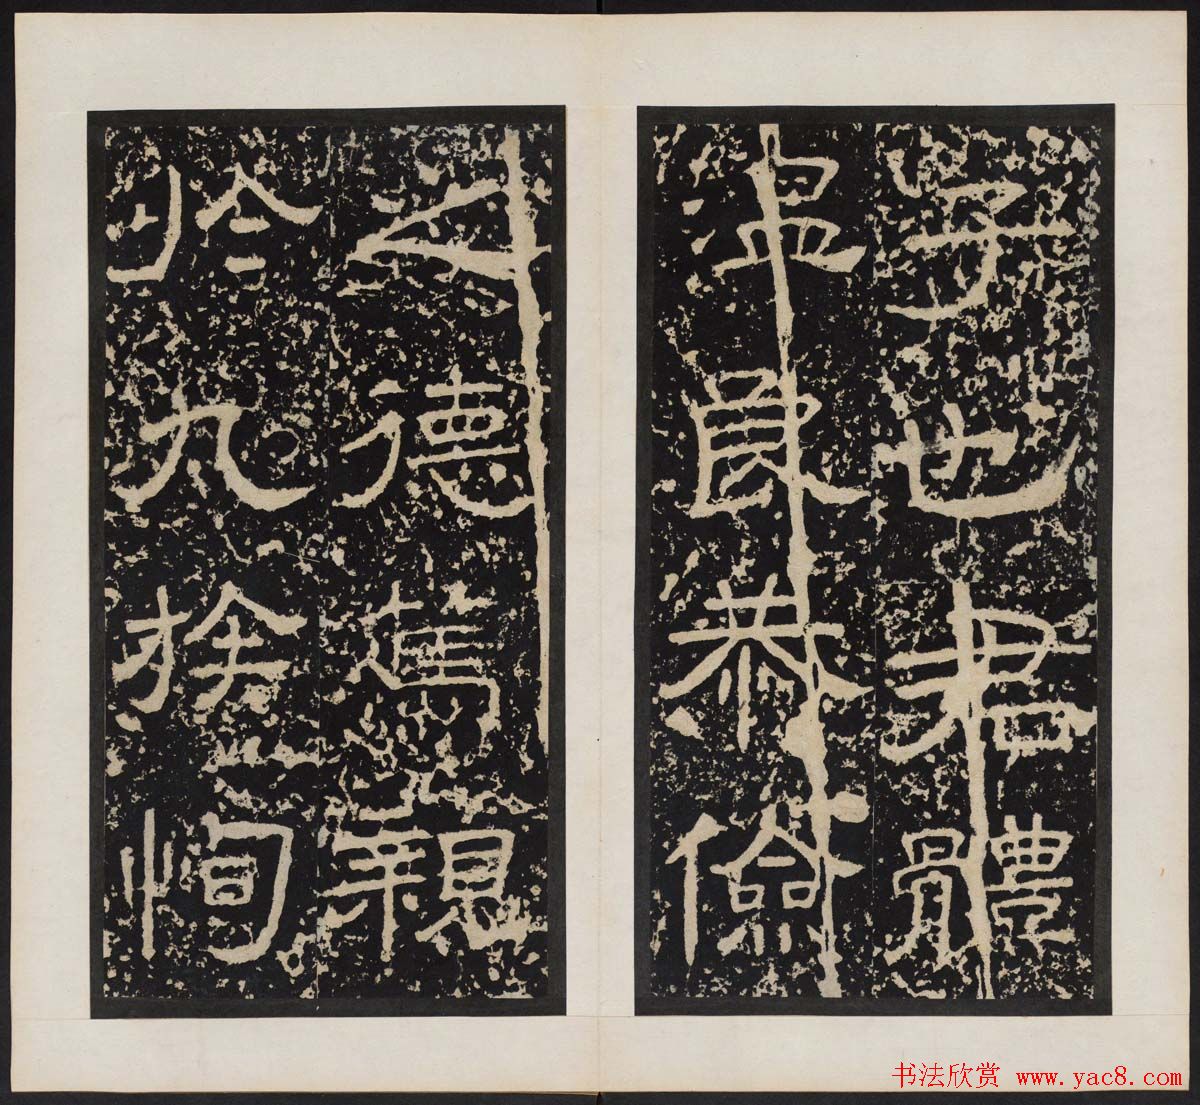 子也君體
温良恭儉
之德篤親
於九族恂
书法欣赏 www.yac8.com